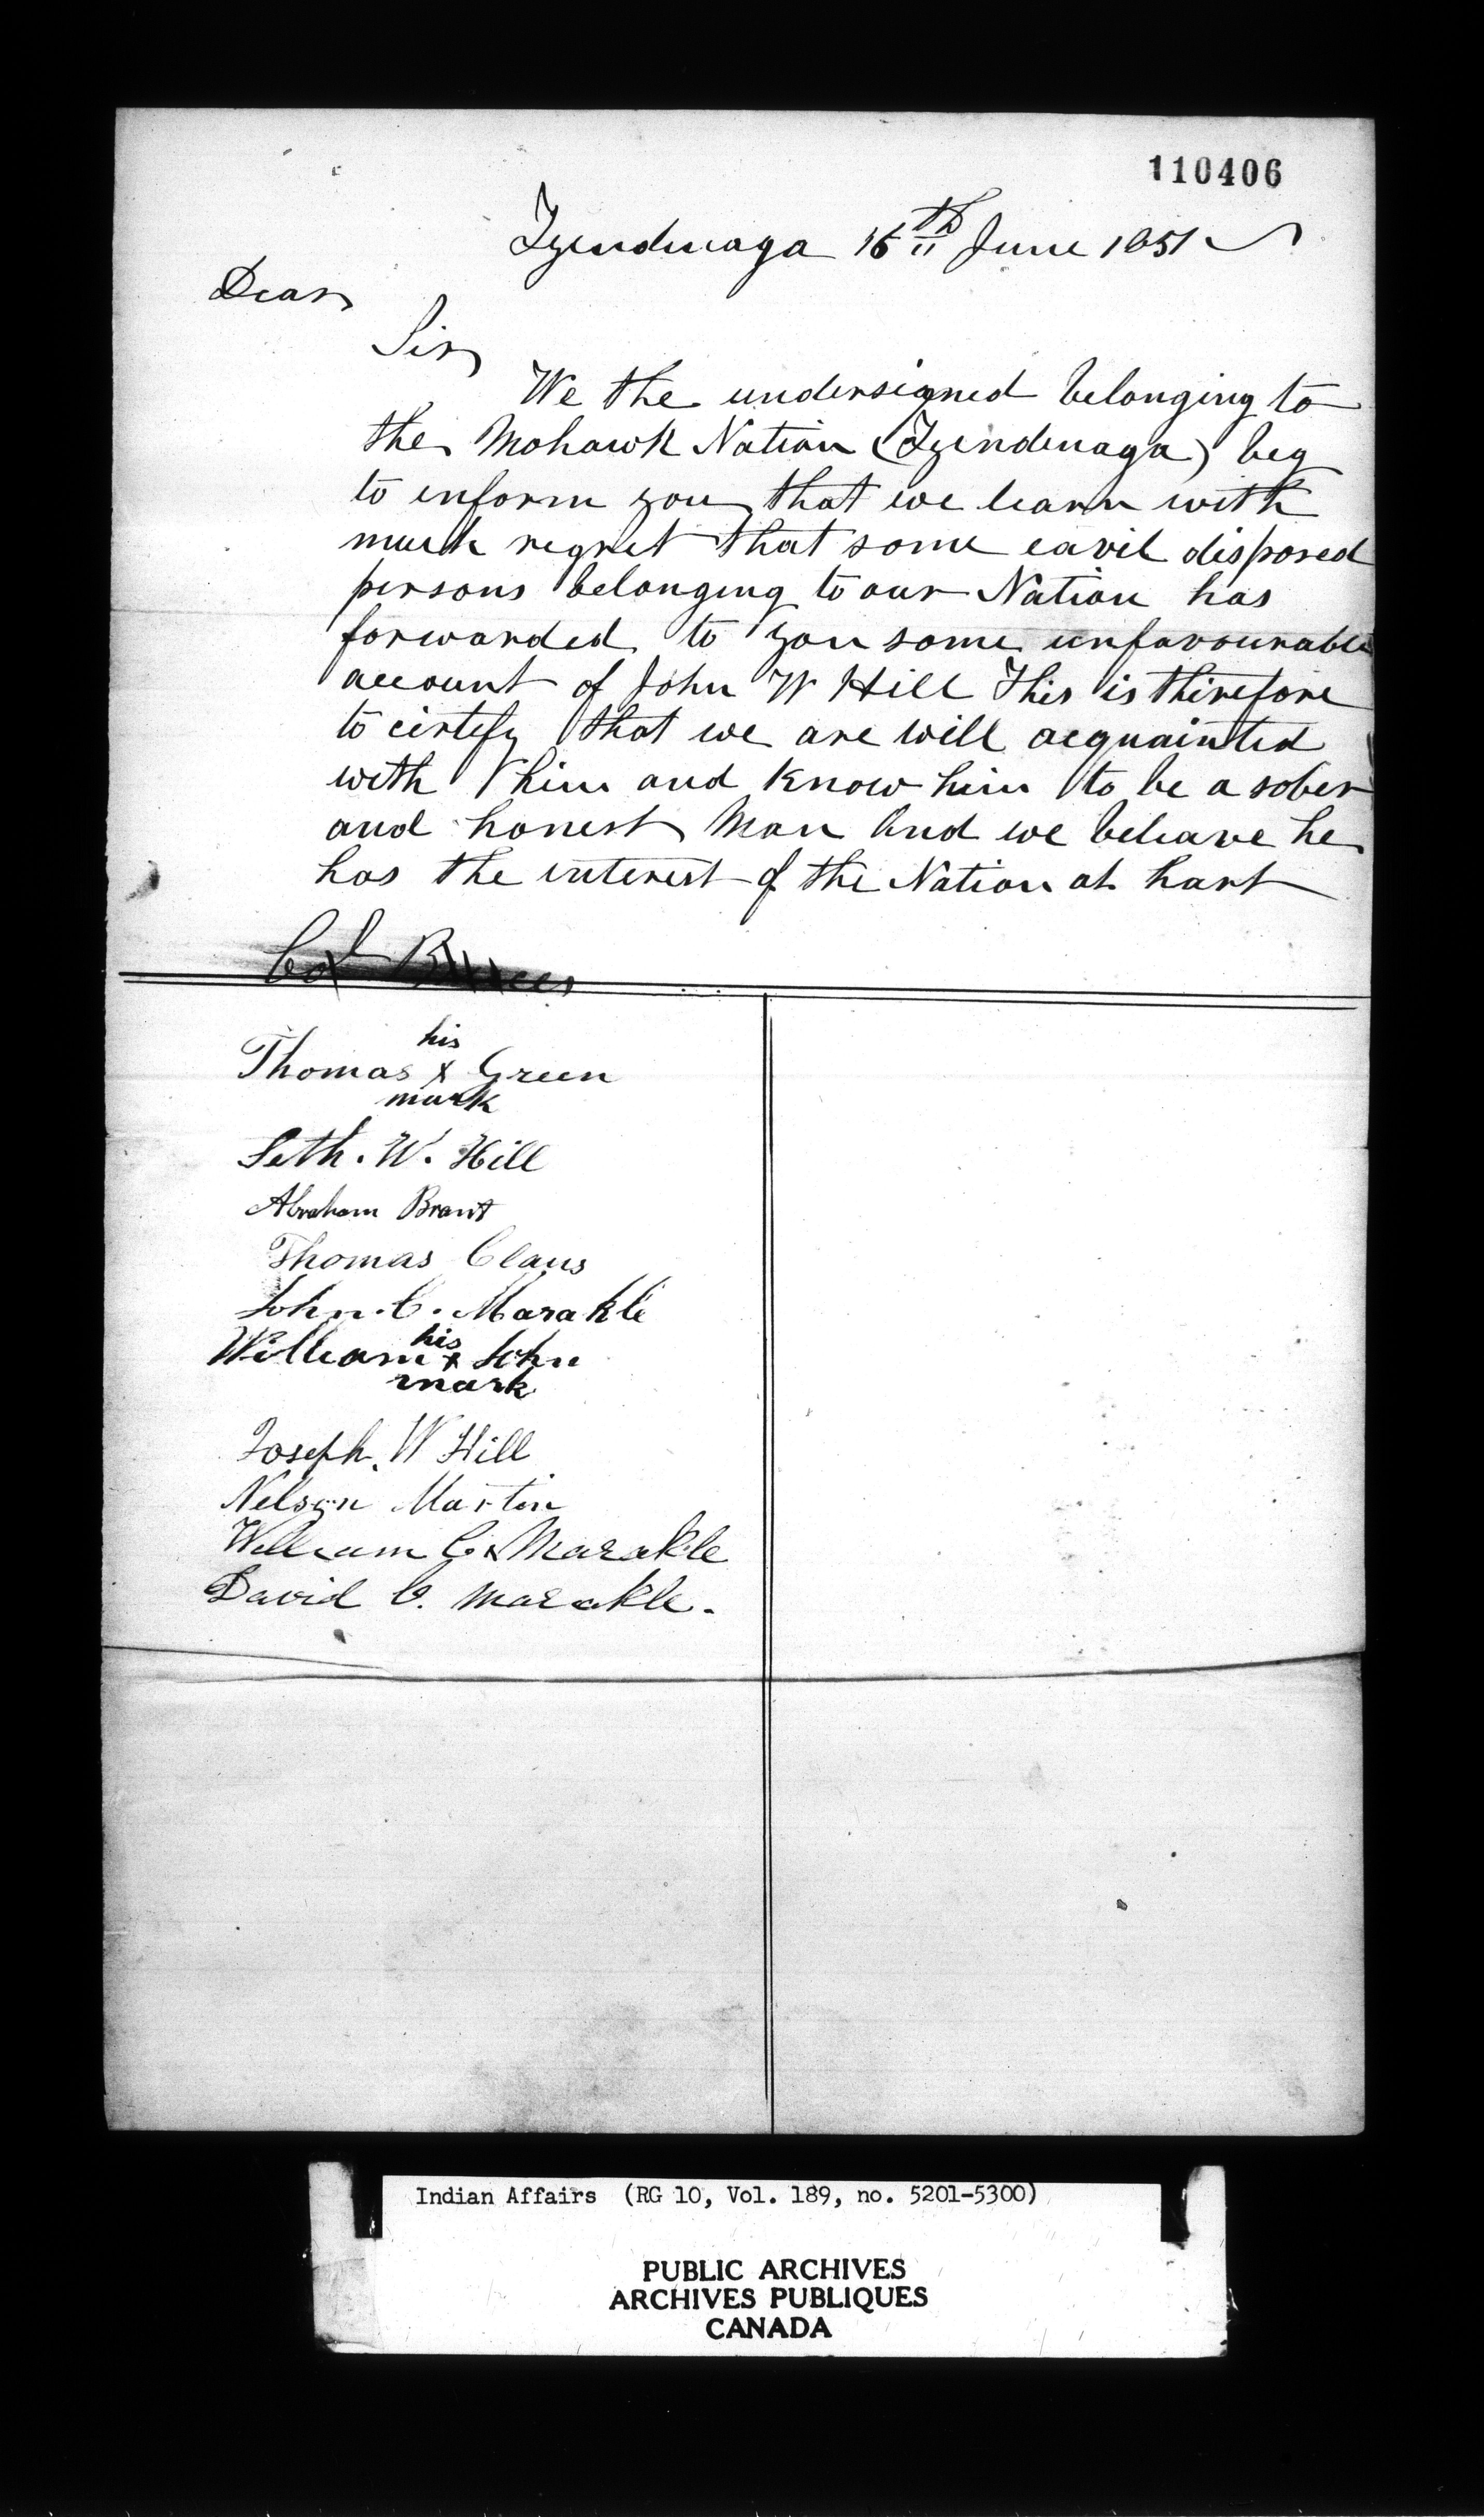 110406
Tyendenaga 16th June 1851
Dear
Sir
We the undersigned belonging to
the Mohawk Nation (Tyendenaga) beg
to inform you that we learn with
much regret that some eavil disposed
persons belonging to our Nation has
forwarded to you some unfavourable
account of John W Hill This is therefore
to certify that we are well acquainted
with him and know him to be a sober
and honest Man And we beleave he
has the interest of the Nation at hart
Col Bruce
his
Thomas x Green
mark
Seth. W. Hill
Abraham Brant
Thomas Claus
John. C. Marakle
his
William x John
mark
Joseph. W Hill
Nelson Martin
William C x Marakle
David C. Marakle.
Indian Affairs (RG 10, Vol. 189, no. 5201-5300)
PUBLIC ARCHIVES
ARCHIVES PUBLIQUES
CANADA